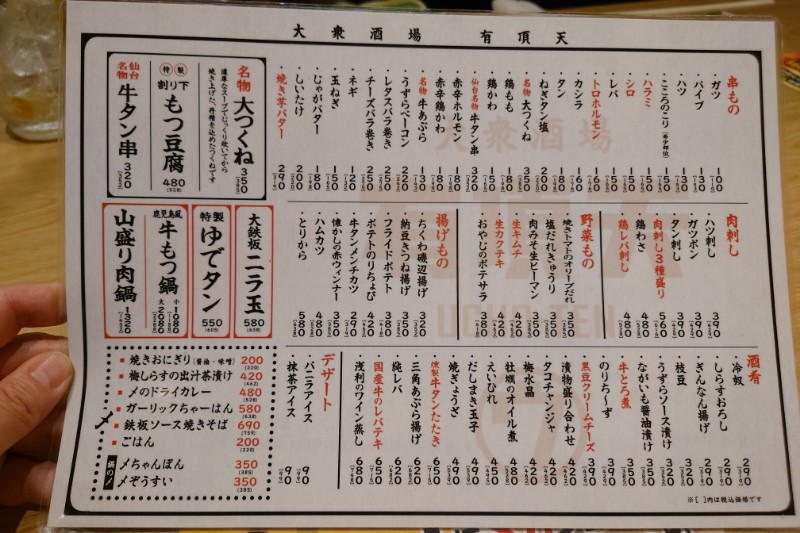 大衆酒場　有頂天
串もの
・ガツ 160
・パイプ 130
・ハツ 160
・こころのこり(希少部位) 150
・ハラミ 180
・シロ 130
・レバ 150
・トロホルモン 180
・カシラ 160
・タン 180
・ねぎタン塩 200
・名物 大つくね 350
・鶏もも 160
・鶏かわ 150
・仙台名物 牛タン串 320
・赤辛ホルモン 180
・赤辛鶏かわ 150
・名物 牛あぶら 180
・うずらベーコン 220
・レタスバラ巻き 250
・チーズバラ巻き 250
・ネギ 150
・玉ねぎ 150
・じゃがバター 180
・しいたけ 200
・焼き芋バター 290
肉刺し
・ハツ刺し 390
・ガツポン 390
・タン刺し 390
・肉刺し3種盛り 560
・鶏わさ 480
・鶏レバ刺し 480
野菜もの
・焼きトマトのオリーブだれ 350
・塩だれきゅうり 350
・肉みそ生ピーマン 350
・生キムチ 350
・生カクテキ 350
・おやじのポテサラ 380
揚げもの
・ちくわ磯辺揚げ 320
・納豆きつね揚げ 350
・フライドポテト 380
・ポテトのりちょび 420
・牛タンメンチカツ 290
・懐かしの赤ウィンナー 350
・ハムカツ 480
・とりから 580
酒肴
・冷奴 290
・しらすおろし 290
・ぎんなん揚げ 390
・枝豆 320
・うずらソース漬け 320
・ながいも醤油漬け 350
・牛とろ煮 390
・のりち〜ず 350
・黒豆クリームチーズ 390
・漬物盛り合わせ 420
・タコチャンジャ 420
・梅水晶 420
・牡蠣のオイル煮 480
・えいひれ 450
・だしまき玉子 490
・焼ぎょうざ 490
・燻製 牛タンたたき 650
・三角あぶら揚げ 620
・純レバ 620
・国産牛のレバテキ 650
・浅利のワイン蒸し 680
デザート
・バニラアイス 90
・抹茶アイス 90
名物 大つくね 350
濃厚なスープでじっくり炊いてから
焼き上げた、丹精を込めたつくねです
特製 割り下 もつ豆腐 480 (528)
仙台名物 牛タン串 320
大鉄板 ニラ玉 580 (638)
特製 ゆでタン 550 (605)
鹿児島風 牛もつ鍋 小1080 大2080
山盛り肉鍋 1320
〆
焼きおにぎり(醤油・味噌) 200 (220)
梅しらすの出汁茶漬け 420 (462)
〆のドライカレー 480 (528)
ガーリックちゃーはん 580 (638)
鉄板ソース焼きそば 690 (759)
ごはん 200 (220)
鍋の〆
〆ちゃんぽん 350 (385)
〆ぞうすい 350 (385)
※[ ]内は税込価格です